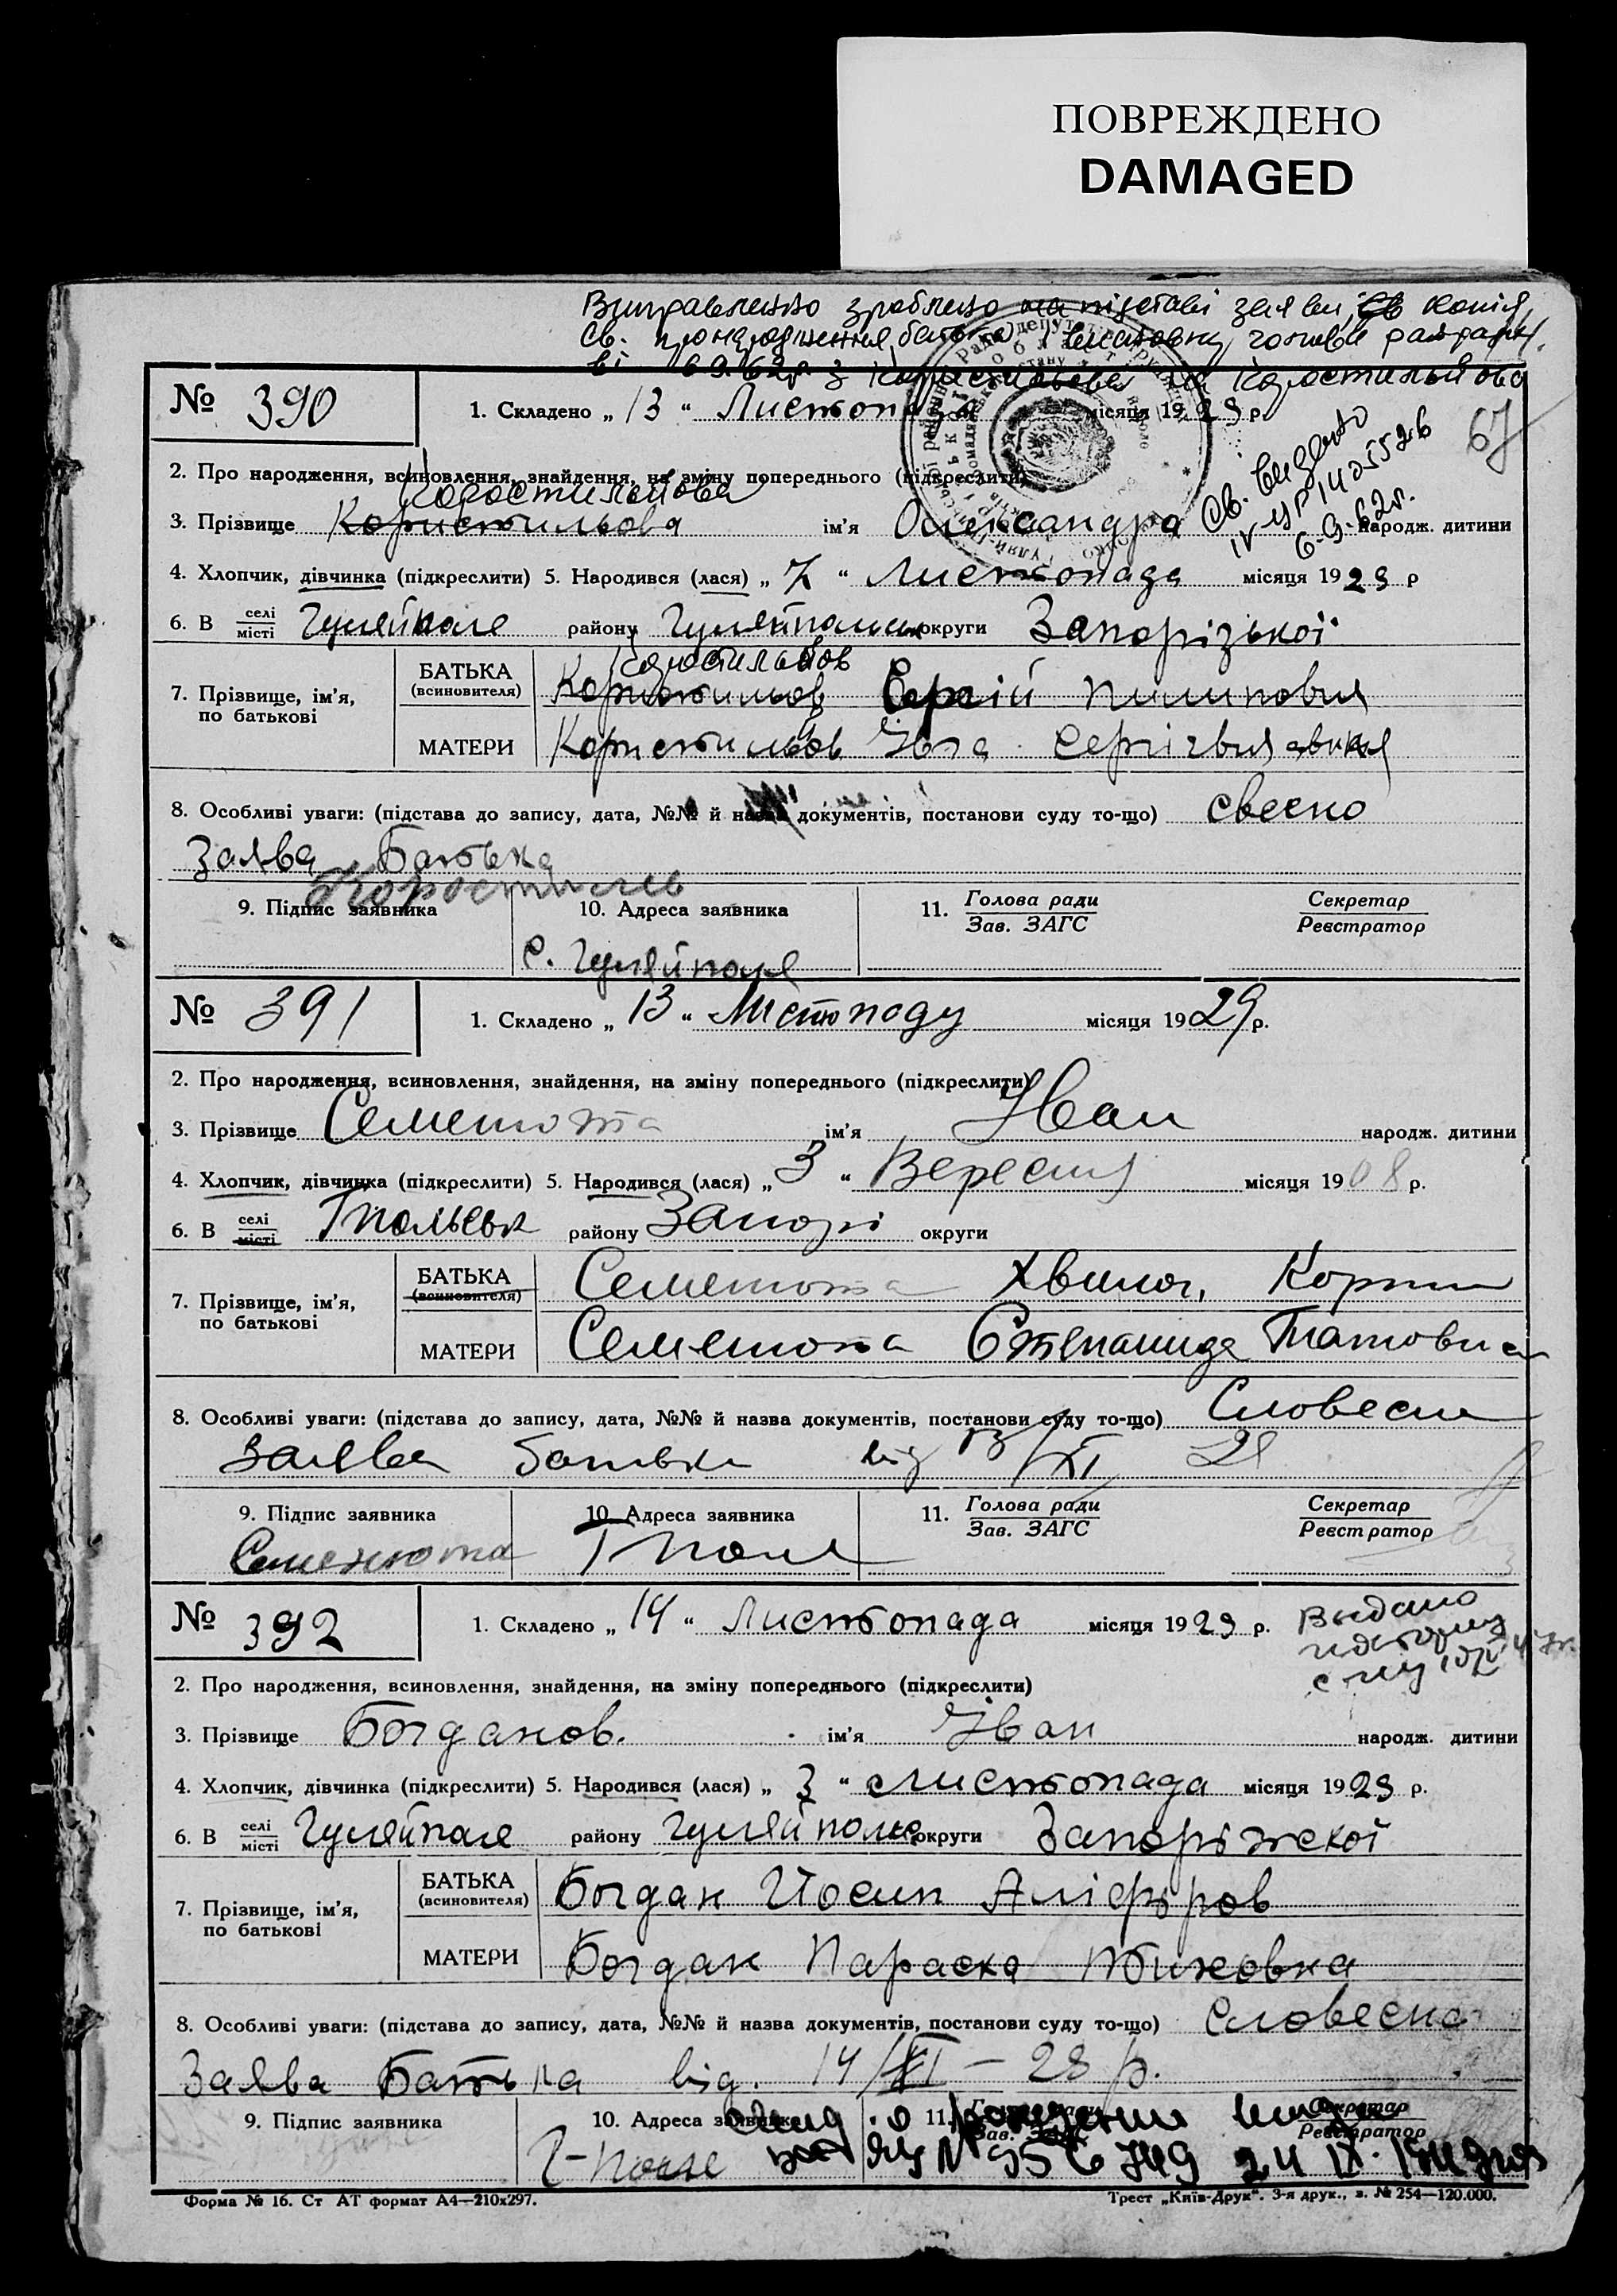 ПОВРЕЖДЕНО
DAMAGED
Виправлення зроблено на підставі заяви, копія
Св. про народження батька
з на
№ 390 1. Складено „ 13 “ Листопада місяця 1929 р.
67
2. Про народження, всиновлення, знайдення, на зміну попереднього (підкреслити)
Св. видано
IV ЯР 1425526
6-9-62г.
3. Прізвище Користильова ім'я Олександра народж. дитини
4. Хлопчик, дівчинка (підкреслити) 5. Народився (лася) „ 7 “ Листопада місяця 1929 р
6. В селі місті Гуляйполе району Гуляйпольск округи Запорізької
7. Прізвище, ім'я, по батькові
БАТЬКА (всиновителя) Сергій Пилипович
МАТЕРИ
8. Особливі уваги: (підстава до запису, дата, №№ й назва документів, постанови суду то-що)
Заява Батька
9. Підпис заявника 10. Адреса заявника 11. Голова ради Зав. ЗАГС Секретар Реєстратор
с. Гуляйполя
№ 391 1. Складено „ 13 “ Листоподу місяця 1929 р.
2. Про народження, всиновлення, знайдення, на зміну попереднього (підкреслити)
3. Прізвище Семенюта ім'я Іван народж. дитини
4. Хлопчик, дівчинка (підкреслити) 5. Народився (лася) „ 3 “ Вересня місяця 1908 р.
6. В селі місті Гпольськ району Запорі округи
7. Прізвище, ім'я, по батькові
БАТЬКА (всиновителя) Семенюта
МАТЕРИ Семенюта Степанида
8. Особливі уваги: (підстава до запису, дата, №№ й назва документів, постанови суду то-що) Словесна
Заява батька від 13/XI 29
9. Підпис заявника 10. Адреса заявника 11. Голова ради Зав. ЗАГС Секретар Реєстратор
Семенюта Гполе
№ 392 1. Складено „ 14 “ Листопада місяця 1929 р.
Выдано
2. Про народження, всиновлення, знайдення, на зміну попереднього (підкреслити)
3. Прізвище Богданов. ім'я Іван народж. дитини
4. Хлопчик, дівчинка (підкреслити) 5. Народився (лася) „ 3 “ Листопада місяця 1929 р.
6. В селі місті Гуляйполе району Гуляйполе округи Запоріжскої
7. Прізвище, ім'я, по батькові
БАТЬКА (всиновителя) Богдан Йосип
МАТЕРИ Богдан Параска
8. Особливі уваги: (підстава до запису, дата, №№ й назва документів, постанови суду то-що) Словесна
Заява Батька від. 14/XI – 29 р.
9. Підпис заявника 10. Адреса заявника 11. Голова ради Зав. ЗАГС Секретар Реєстратор
Г-поле
Форма № 16. Ст АТ формат А4—210х297. Трест „Київ-Друк“. 3-я друк., з. № 254—120.000.